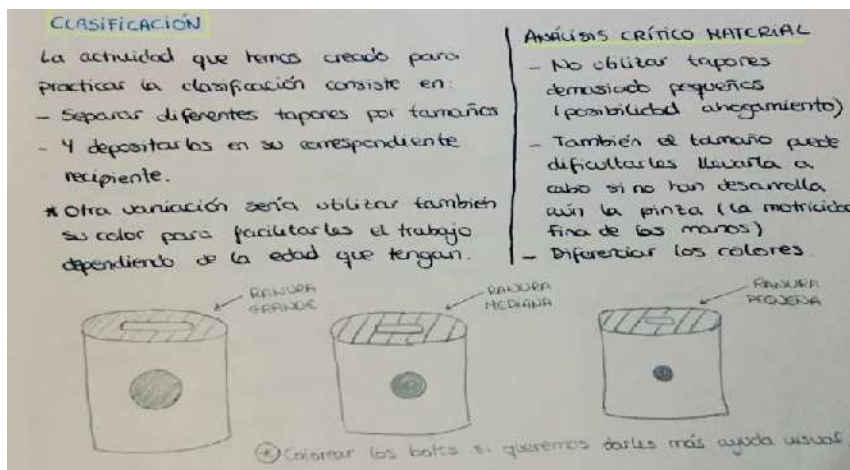 CLASIFICACIÓN
La actividad que hemos creado para
practicar la clasificación consiste en:
- Separar diferentes tapones por tamaños
- Y depositarlos en su correspondiente
recipiente.
* Otra variación sería utilizar también
su color para facilitarles el trabajo
dependiendo de la edad que tengan.
ANÁLISIS CRÍTICO MATERIAL
- No utilizar tapones
demasiado pequeños
(posibilidad ahogamiento)
- También el tamaño puede
dificultarles llevarla a
cabo si no han desarrolla
aún la pinza (la motricidad
fina de las manos)
- Diferenciar los colores
RANURA
GRANDE
RANURA
MEDIANA
RANURA
PEQUEÑA
* Colorear los botes si queremos darles más ayuda visual